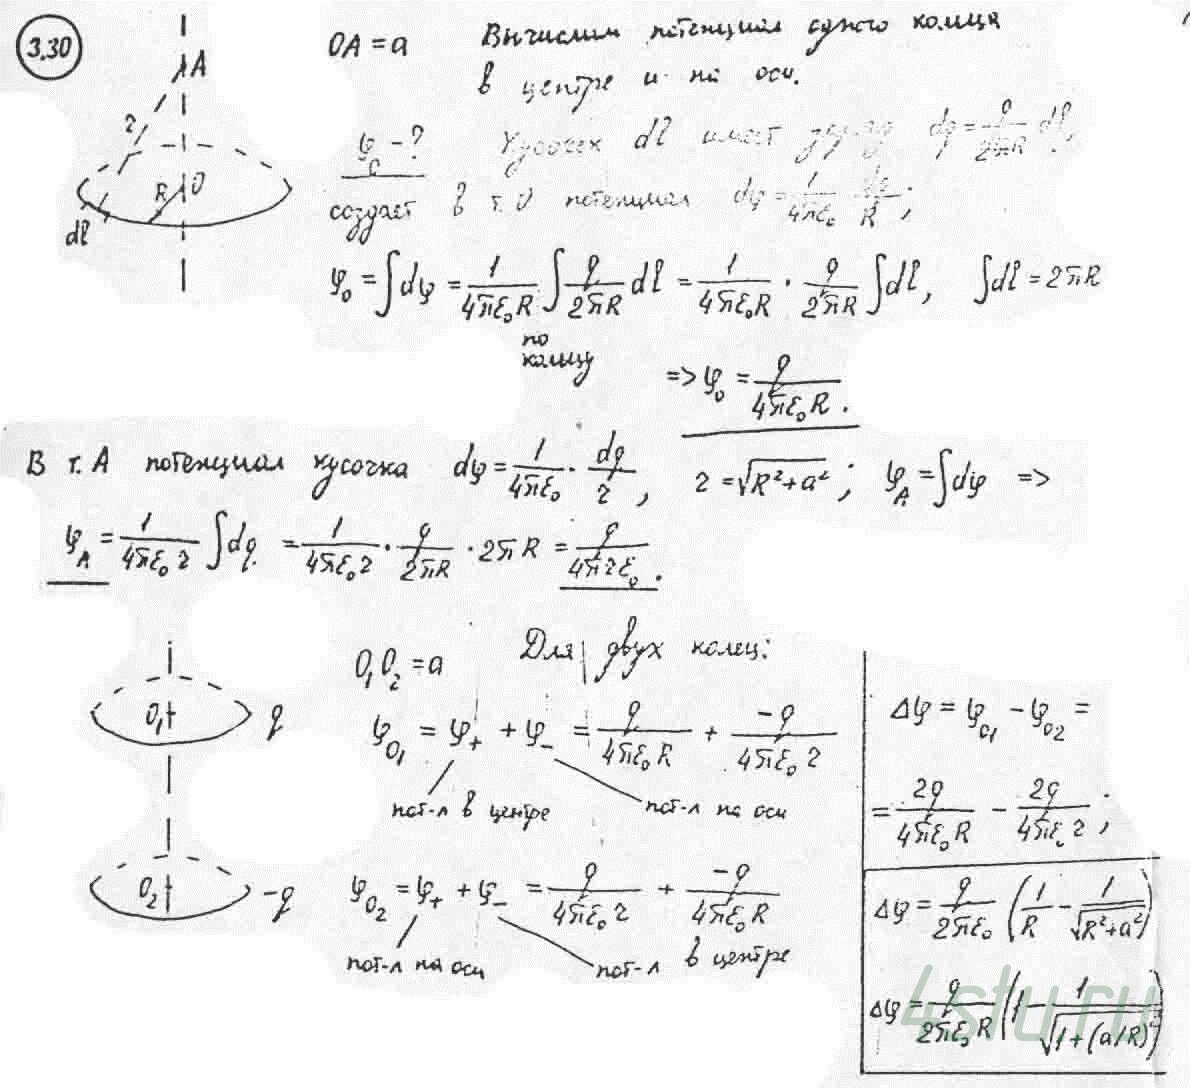 3.30
A
r
R
O
dl
OA = a
Вычислим потенциал одного кольца
в центре и на оси.
φ₀ - ?
Кусочек dl имеет заряд dq = q/(2πR) dl,
создает в т. O потенциал dφ = 1/(4πε₀) · dq/R ;
φ₀ = ∫dφ = 1/(4πε₀R) ∫ q/(2πR) dl = 1/(4πε₀R) · q/(2πR) ∫dl, ∫dl = 2πR
по
кольцу
=> φ₀ = q/(4πε₀R).
В т. A потенциал кусочка dφ = 1/(4πε₀) · dq/r, r = √(R²+a²); φ_A = ∫dφ =>
φ_A = 1/(4πε₀r) ∫dq = 1/(4πε₀r) · q/(2πR) · 2πR = q/(4πrε₀).
O₁
q
O₂
-q
O₁O₂ = a
Для двух колец:
φ_O₁ = φ₊ + φ₋ = q/(4πε₀R) + -q/(4πε₀r)
пот-л в центре
пот-л на оси
φ_O₂ = φ₊ + φ₋ = q/(4πε₀r) + -q/(4πε₀R)
пот-л на оси
пот-л в центре
Δφ = φ_O₁ - φ_O₂ =
= 2q/(4πε₀R) - 2q/(4πε₀r) ;
Δφ = q/(2πε₀) (1/R - 1/√(R²+a²))
Δφ = q/(2πε₀R) (1 - 1/√(1+(a/R)²))
4stu.ru